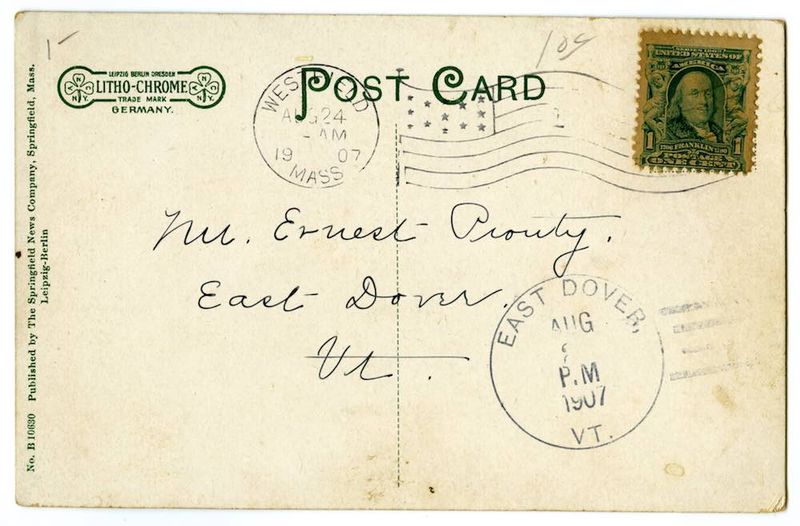 1-
10¢
LEIPZIG BERLIN DRESDEN
LITHO-CHROME
TRADE MARK
GERMANY.
N N
N.Y. N.Y.
POST CARD
WESTFIELD
AUG 24
AM
19 07
MASS
SERIES 1902
UNITED STATES OF
AMERICA
1706 FRANKLIN 1790
POSTAGE
1 ONE CENT 1
Mr. Ernest Prouty.
East Dover.
Vt.
EAST DOVER,
AUG
P.M
1907
VT.
No. B 10630 Published by The Springfield News Company, Springfield, Mass.
Leipzig-Berlin